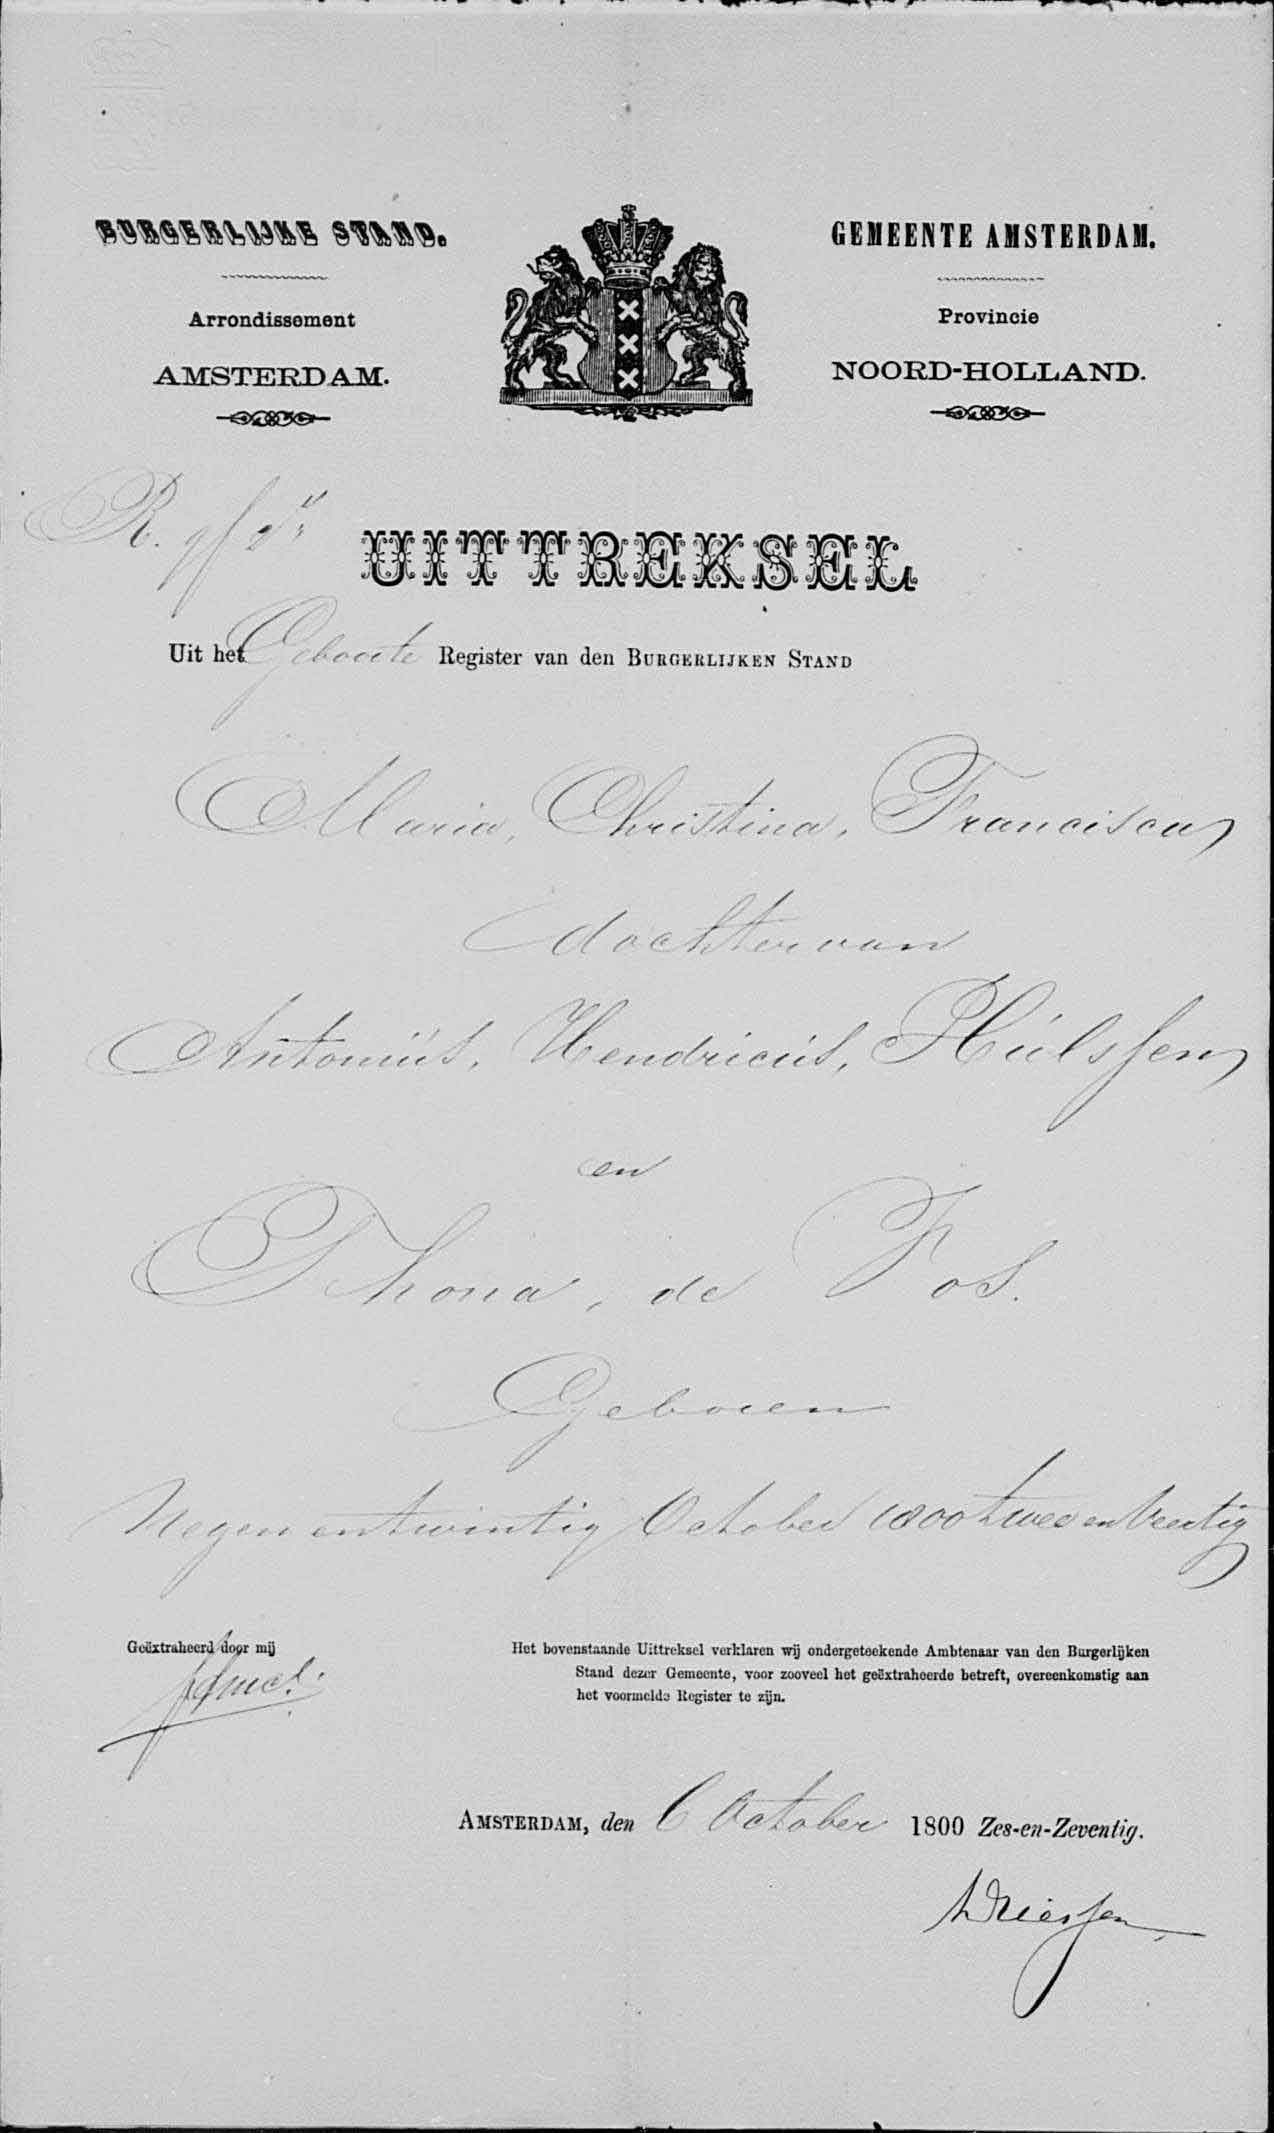 BURGERLIJKE STAND.
GEMEENTE AMSTERDAM.
Arrondissement
Provincie
AMSTERDAM.
NOORD-HOLLAND.
R.
UITTREKSEL
Uit het Geboorte Register van den BURGERLIJKEN STAND
Maria, Christina, Francisca
dochter van
Antoniús, Hendricús, Húlssen
en
Thona, de Fos.
Geboren
Negen en twintig October 1800 twee en veertig
Geëxtraheerd door mij
Het bovenstaande Uittreksel verklaren wij ondergeteekende Ambtenaar van den Burgerlijken
Stand dezer Gemeente, voor zooveel het geëxtraheerde betreft, overeenkomstig aan
het voormelde Register te zijn.
AMSTERDAM, den 6 October 1800 Zes-en-Zeventig.